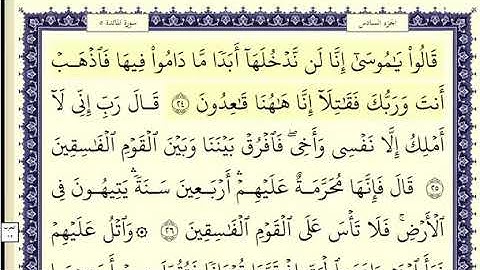 سورة المائدة ٥
الجزء السادس
قَالُوا۟ يَـٰمُوسَىٰٓ إِنَّا لَن نَّدْخُلَهَآ أَبَدًا مَّا دَامُوا۟ فِيهَا فَٱذْهَبْ
أَنتَ وَرَبُّكَ فَقَـٰتِلَآ إِنَّا هَـٰهُنَا قَـٰعِدُونَ ٢٤ قَالَ رَبِّ إِنِّى لَآ
أَمْلِكُ إِلَّا نَفْسِى وَأَخِى ۖ فَٱفْرُقْ بَيْنَنَا وَبَيْنَ ٱلْقَوْمِ ٱلْفَـٰسِقِينَ
٢٥ قَالَ فَإِنَّهَا مُحَرَّمَةٌ عَلَيْهِمْ ۛ أَرْبَعِينَ سَنَةً ۛ يَتِيهُونَ فِى
ٱلْأَرْضِ ۚ فَلَا تَأْسَ عَلَى ٱلْقَوْمِ ٱلْفَـٰسِقِينَ ٢٦ ۞ وَٱتْلُ عَلَيْهِمْ